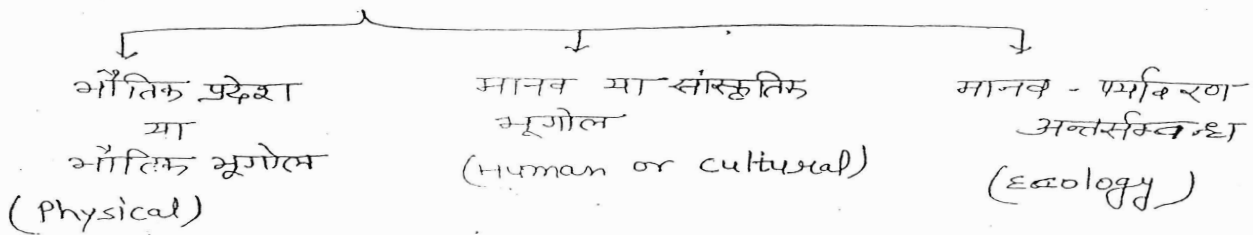 भौतिक प्रदेश
या
भौतिक भूगोल
(Physical)
मानव या सांस्कृतिक
भूगोल
(Human or cultural)
मानव - पर्यावरण
अन्तर्सम्बन्ध
(Ecology)